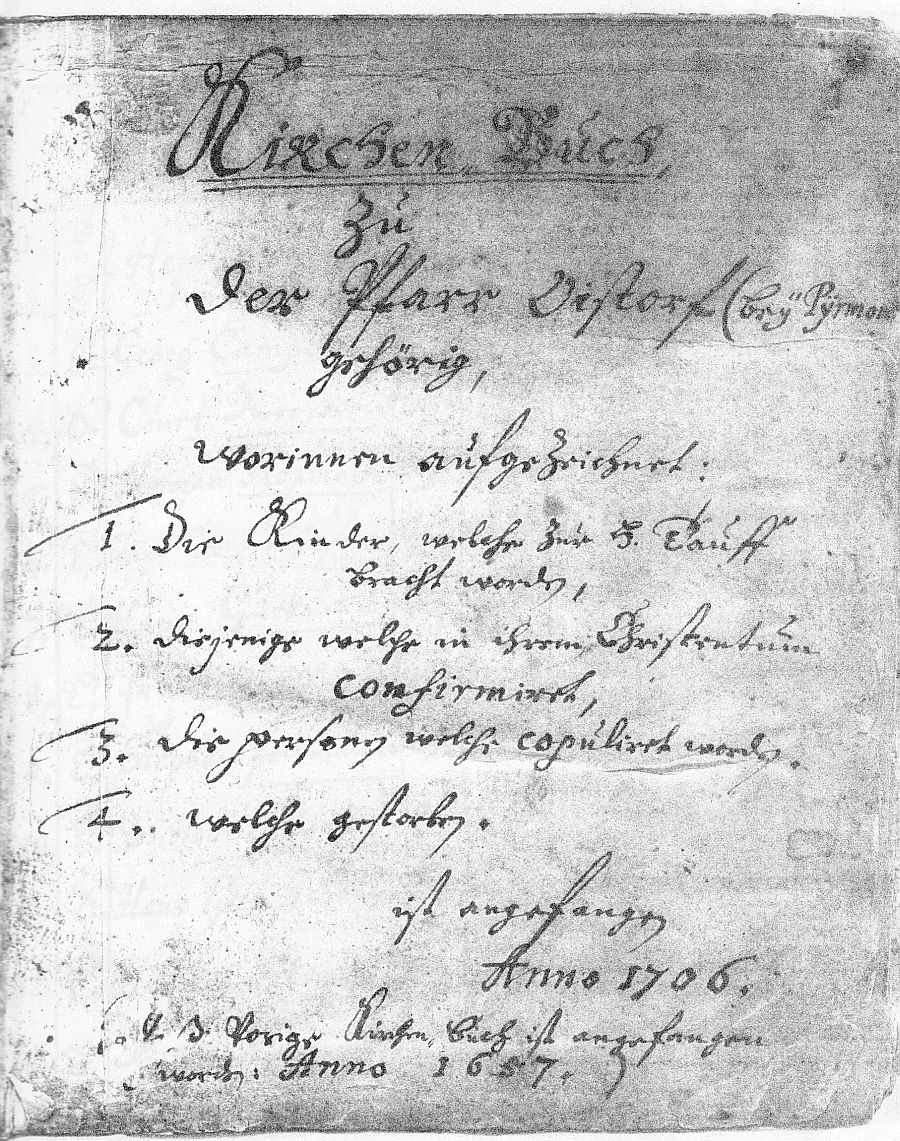 Kirchen Buch,
Zu
der Pfarr Oistorf (beÿ Pÿrmont
gehörig,
worinnen aufgezeichnet:
1. Die Kinder, welche zur H. Tauff
bracht worden,
2. diejenige welche in ihrem Christentum
confirmiret,
3. die personen welche copuliret worden.
4. welche gestorben.
ist angefangen
Anno 1706.
Vorige Kirchen buch ist angefangen
worden: Anno 1657.)